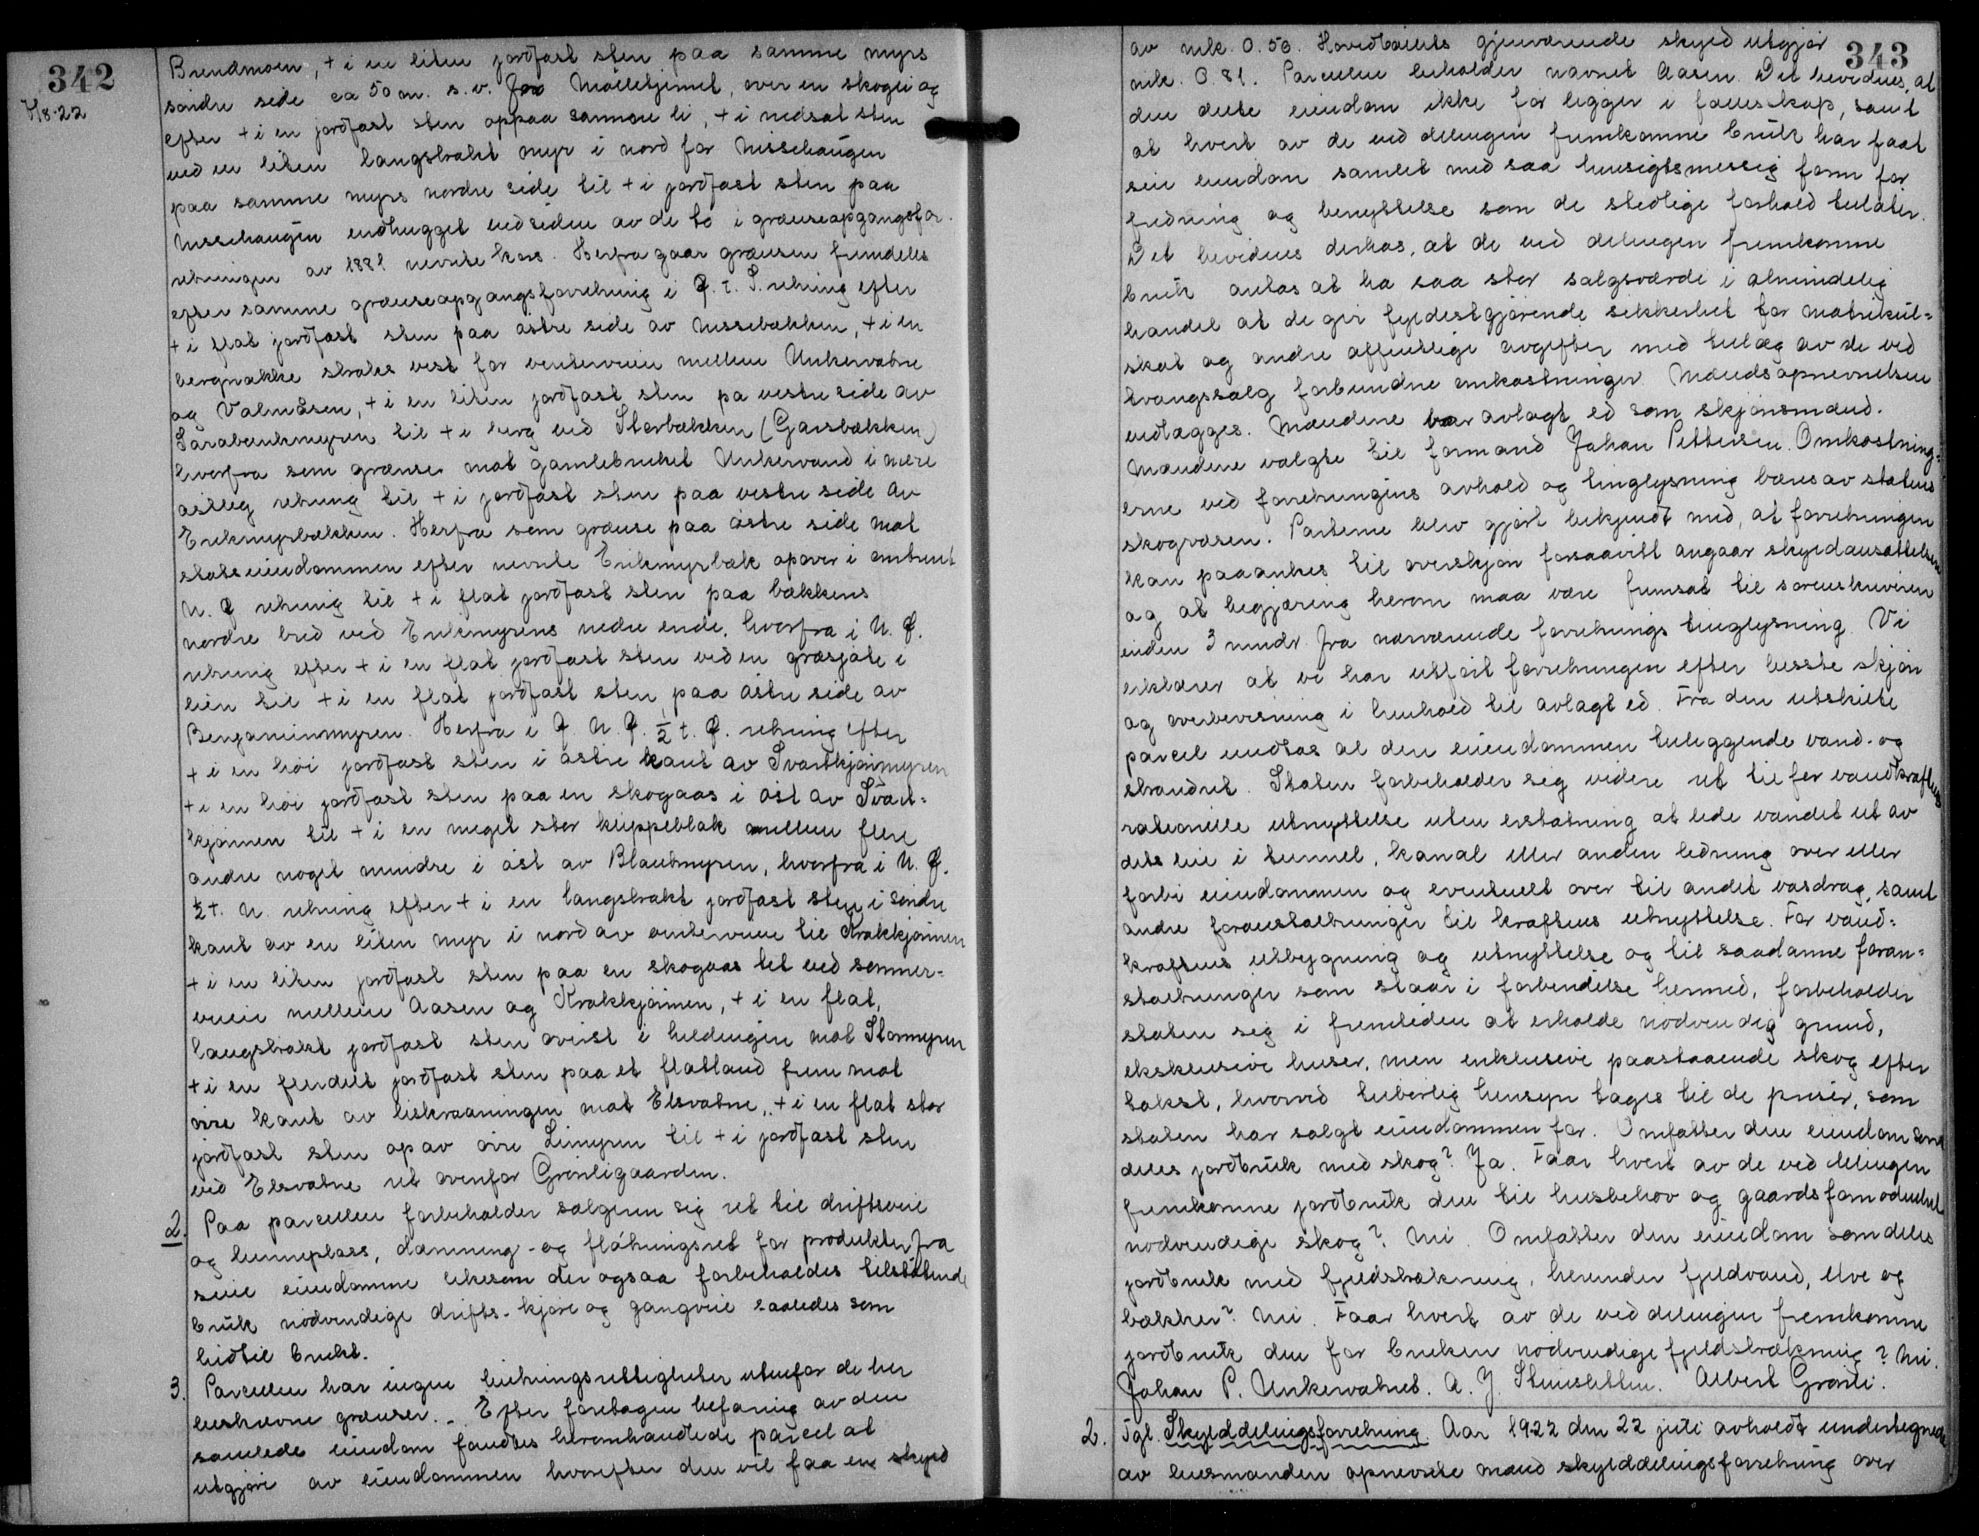 342
7/8-22
Brendmoen, + i en liten jordfast sten paa samme myrs
søndre side ca 50 m. s.v. for Mølletjernet, over en skogli og
efter + i en jordfast sten oppaa samme li, + i nedsat sten
ved en liten langstrakt myr i nord for Nissehaugen
paa samme myrs nordre side til + i jordfast sten paa
Nissehaugen indhugget ved siden av de to i grænseopgangsfor-
retningen av 1881 nevnte kors. Herfra gaar grænsen fremdeles
efter samme grænseopgangsforretning i Ø. t. S. retning efter
+ i flat jordfast sten paa østre side av Nissebækken, + i en
bergnakke straks vest for vinterveien mellem Unkervatne
og Valmåsen, + i en liten jordfast sten pa vestre side av
Sarabænkmyren til + i berg ved Storbækken (Garsbækken)
hvorfra som grænse mot gamlebruket Unkervand i mere
østlig retning til + i jordfast sten paa vestre side av
Erikmyrbækken. Herfra som grænse paa østre side mot
statseiendommen efter nevnte Erikmyrbæk opover i omtrent
N. Ø retning til + i flat jordfast sten paa bækkens
nordre bred ved Erikmyrens nedre ende, hvorfra i N. Ø.
retning efter + i en flat jordfast sten ved en græsjåte i
lien til + i en flat jordfast sten, paa østre side av
Benjaminmyren. Herfra i Ø. N. Ø. ½ t. Ø. retning efter
+ i en høi jordfast sten i østre kant av Svartkjønmyren
+ i en høi jordfast sten paa en skogaas i øst av Svart-
kjønnen til + i en meget stor klippeblok mellem flere
andre noget mindre i øst av Blautmyren, hvorfra i N. Ø.
½ t. N. retning efter + i en langstrakt jordfast sten i søndre
kant av en liten myr i nord av vinterveien til Krakkjønnen
+ i en liten jordfast sten paa en skogaas tet ved sommer-
veien mellem Aasen og Krakkjønnen, + i en flat,
langstrakt jordfast sten øverst i heldingen mot Stormyren
+ i en firedelt jordfast sten paa et flatland frem mot
øvre kant av liskraaningen mot Elsvatne, + i en flat stor
jordfast sten op av øvre Limyren til + i jordfast sten
ved Elsvatne ret ovenfor Grønligaarden.
2. Paa parcellen forbeholder sælgeren sig ret til driftsveie
og lunneplass, dæmning- og fløtningsret for produkter fra
sine eiendomme likesom der ogsaa forbeholdes tilstøtende
bruk nødvendige drifts- kjøre og gangveie saaledes som
hidtil brukt.
3. Parcellen har ingen beitningsrettigheter utenfor de her
beskrevne grænser. - Efter foretagen befaring av den
samlede eiendom fandtes heromhandlede parcel at
utgjøre av eiendommen hvorefter den vil faa en skyld
343
av mk. 0.50. Hovedbølets gjenværende skyld utgjør
mk. 0.81. Parcellen beholder navnet Aasen. Det bevidnes, at
den delte eiendom ikke før ligger i fællesskap, samt
at hvert av de ved delingen fremkomne bruk har faat
sin eiendom samlet med saa hensigtsmessig form for
fredning og benyttelse som de stedlige forhold tillater.
Det bevidnes derhos, at de ved delingen fremkomne
bruk antas at ha saa stor salgsværdi i almindelig
handel at de gir fyldestgjørende sikkerhet for matrikul-
skat og andre offentlige avgifter med tillæg av de ved
tvangssalg forbundne omkostninger. Mændsopnevnelsen
vedlægges. Mændene har avlagt ed som skjønsmænd.
Mændene valgte til formand Johan Pettersen. Omkostning-
erne ved forretningens avhold og tinglysning bæres av statens
skogvæsen. Parterne blev gjort bekjendt med, at forretningen
kan paaankes til overskjøn forsaavitt angaar skyldansættelsen
og at begjæring herom maa være fremsat til sorenskriveren
inden 3 mndr. fra nærværende forretnings tinglysning. Vi
erklærer at vi har utført forretningen efter beste skjøn
og overbevisning i henhold til avlagt ed. Fra den utskilte
parcel undtas al den eiendommen tilliggende vand- og
strandret. Staten forbeholder sig videre ret til for vandkraftens
rationelle utnyttelse uten erstatning at lede vandet ut av
dets leie i tunnel, kanal eller anden ledning over eller
forbi eiendommen og eventuelt over til andet vasdrag, samt
andre foranstaltninger til kraftens utnyttelse. For vand-
kraftens utbygning og utnyttelse og til saadanne foran-
staltninger som staar i forbindelse hermed, forbeholder
staten sig i fremtiden at erholde nødvendig grund,
eksklusive huser, men inklusive paastaaende skog efter
takst, hvorved tilbørlig hensyn tages til de priser, som
staten har solgt eiendommen for. Omfatter den eiendom som
deles jordbruk med skog? Ja. Faar hvert av de ved delingen
fremkomne jordbruk den til husbehov og gaardsfornødenhet
nødvendige skog? Nei. Omfatter den eiendom som deles
jordbruk med fjeldstrækning, herunder fjeldvand, elve og
bækker? Nei. Faar hvert av de ved delingen fremkomne
jordbruk den for bruken nødvendige fjeldstrækning? Nei.
Johan P. Unkervatnet. A. J. Stensletten. Albert Grønli.
2. Tgl. Skylddelingsforretning Aar 1922 den 22 juli avholdt undertegnede
av lensmanden opnevnte mænd skylddelingsforretning over